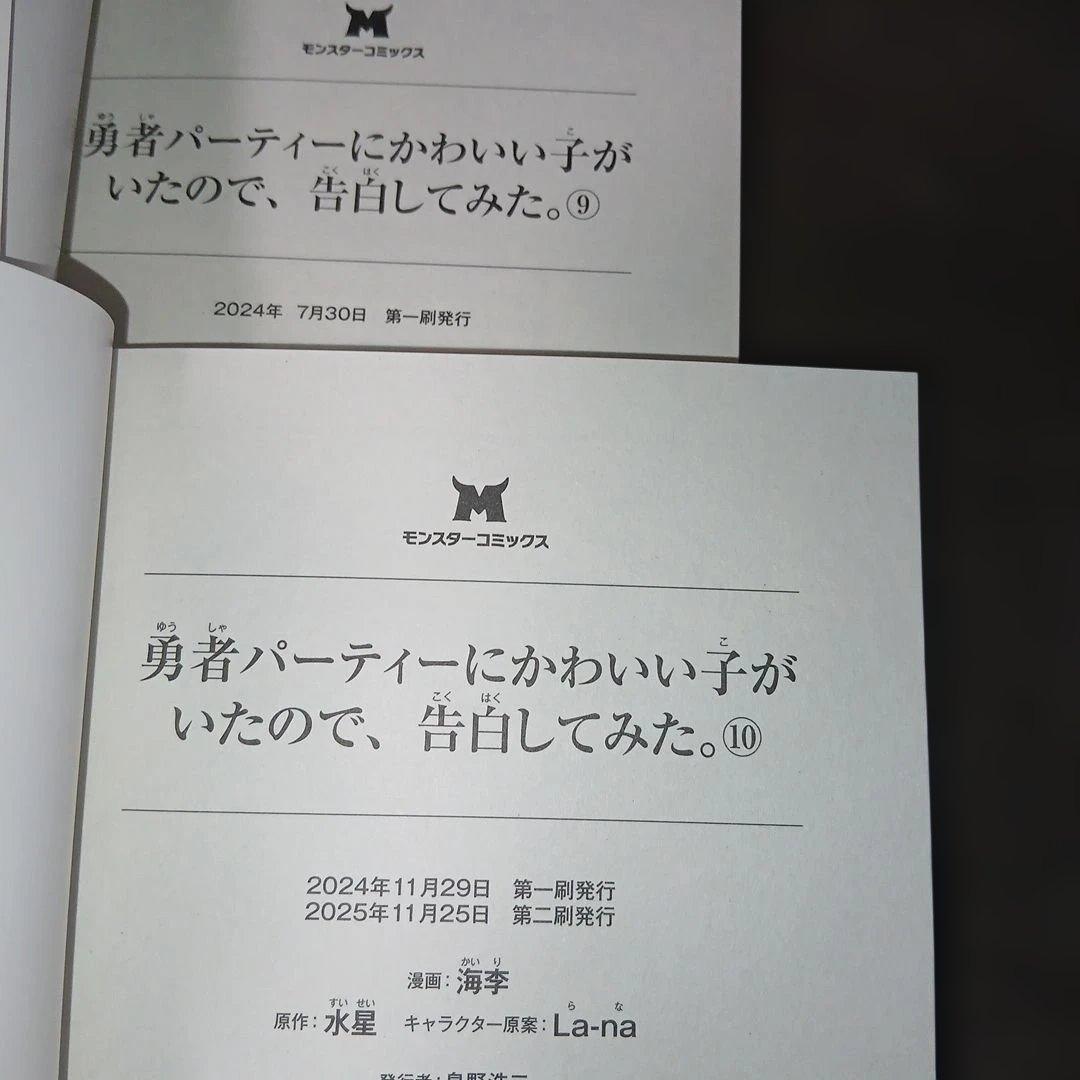 モンスターコミックス
勇者パーティーにかわいい子が
いたので、告白してみた。⑨
2024年 7月30日 第一刷発行
M
モンスターコミックス
ゆう しゃ こ
勇者パーティーにかわいい子が
こく はく
いたので、告白してみた。⑩
2024年11月29日 第一刷発行
2025年11月25日 第二刷発行
かい り
漫画：海李
すい せい ら な
原作：水星 キャラクター原案：La-na